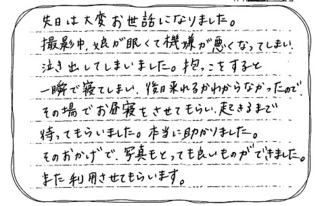 先日は大変お世話になりました。
撮影中、娘が眠くて機嫌が悪くなってしまい、
泣き出してしまいました。抱っこをすると
一瞬で寝てしまい、後日来れるかわからなかったので
その場でお昼寝をさせてもらい、起きるまで
待ってもらいました。本当に助かりました。
そのおかげで、写真もとっても良いものができました。
また利用させてもらいます。